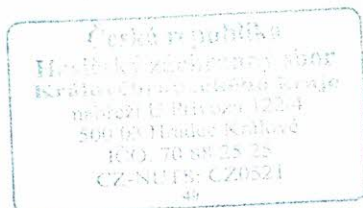 Česká republika
Hasičský záchranný sbor
Královéhradeckého kraje
nábřeží U Přívozu 122/4
500 03 Hradec Králové
IČO: 70 88 25 25
CZ-NUTS: CZ0521
49